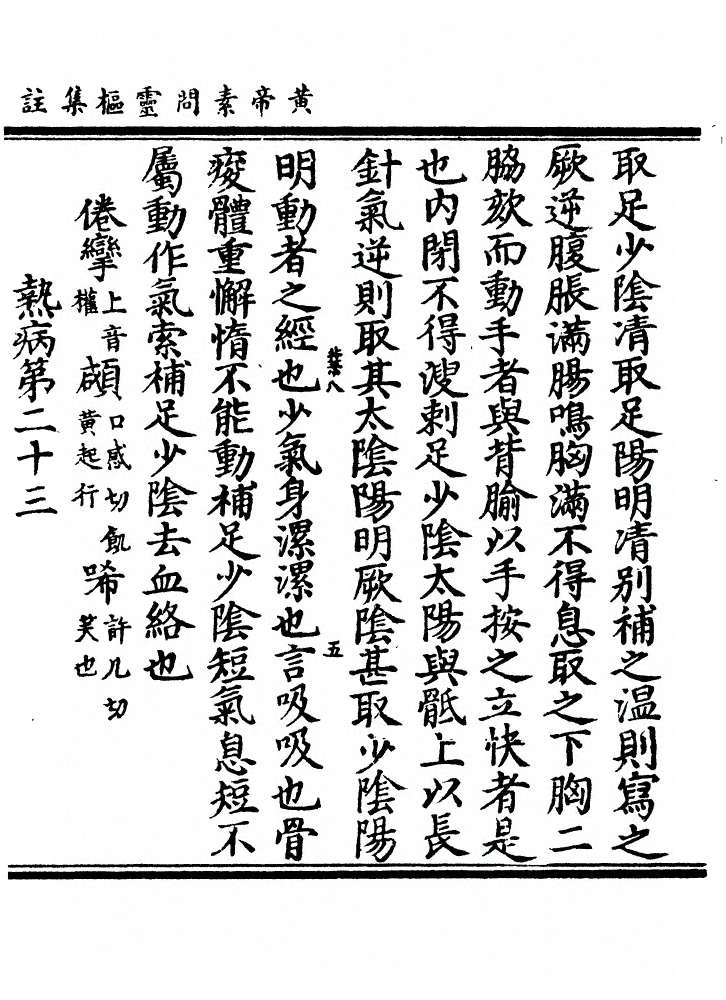 黃帝素問靈樞集註
取足少陰凊取足陽明凊別補之温則寫之
厥逆腹脹滿腸鳴胸滿不得息取之下胸二
脇欬而動手者與背腧以手按之立快者是
也内閉不得溲刺足少陰太陽與骶上以長
針氣逆則取其太陰陽明厥陰甚取少陰陽
業八
五
明動者之經也少氣身漯漯也言吸吸也骨
痠體重懈惰不能動補足少陰短氣息短不
屬動作氣索補足少陰去血絡也
倦攣上音權 顑口感切飢黃起行 唏許几切笑也
熱病第二十三